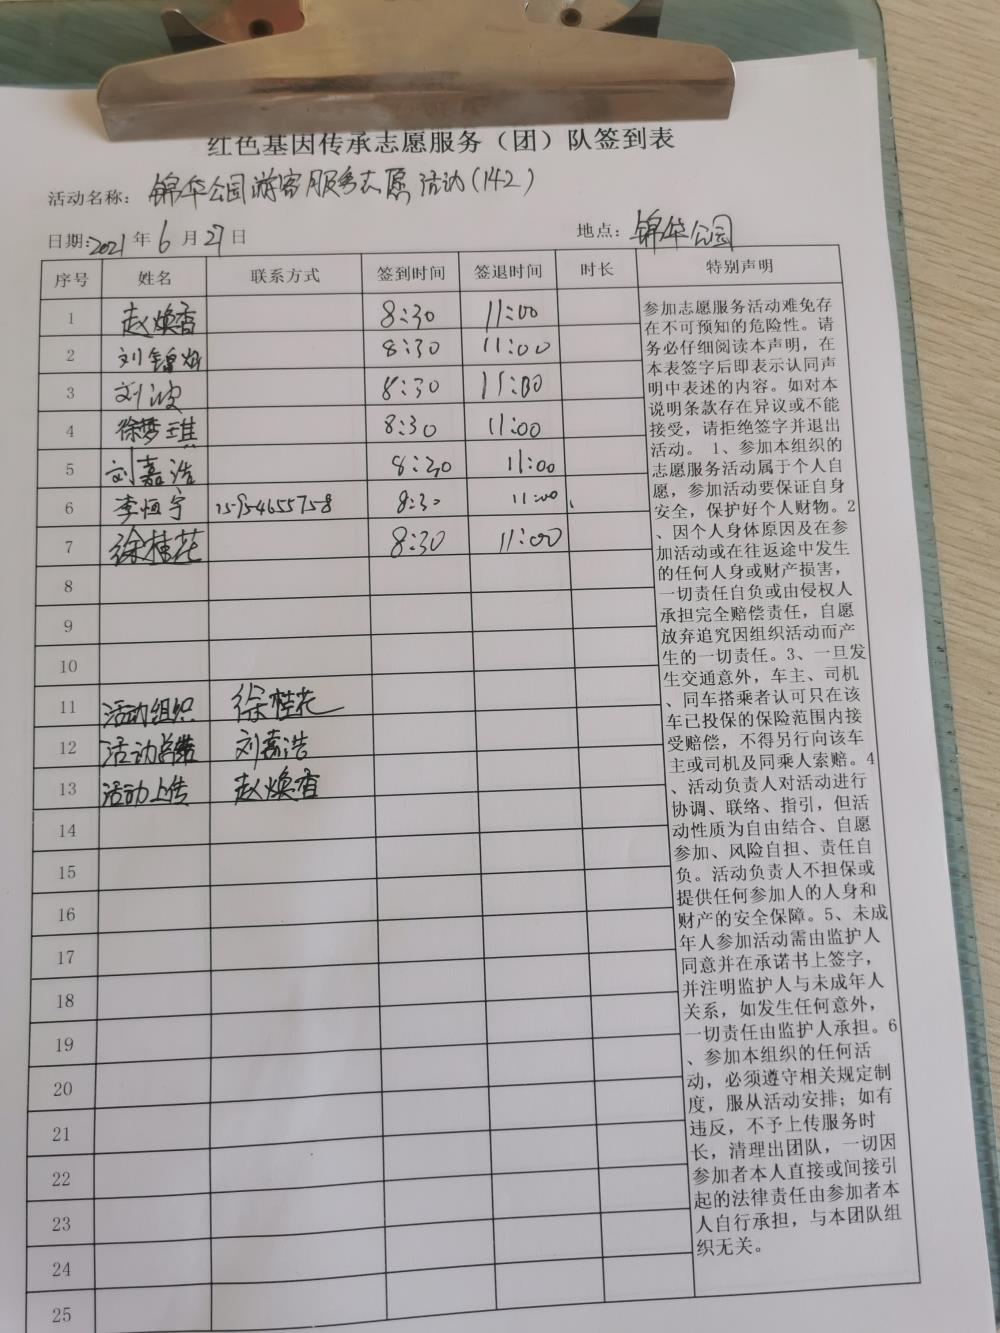 红色基因传承志愿服务（团）队签到表
活动名称： 锦华公园游客服务志愿活动（142）
日期：2021 年 6 月 27 日 地点： 锦华公园
序号 姓名 联系方式 签到时间 签退时间 时长 特别声明
1 赵焕香 8:30 11:00
2 刘锦 8:30 11:00
3 刘波 8:30 11:00
4 徐梦琪 8:30 11:00
5 刘嘉浩 8:30 11:00
6 李恒宇 15954655758 8:30 11:00
7 徐桂花 8:30 11:00
8
9
10
11 活动组织 徐桂花
12 活动 刘嘉浩
13 活动上传 赵焕香
14
15
16
17
18
19
20
21
22
23
24
25
参加志愿服务活动难免存
在不可预知的危险性。请
务必仔细阅读本声明，在
本表签字后即表示认同声
明中表述的内容。如对本
说明条款存在异议或不能
接受，请拒绝签字并退出
活动。 1、参加本组织的
志愿服务活动属于个人自
愿，参加活动要保证自身
安全，保护好个人财物。2
、因个人身体原因及在参
加活动或在往返途中发生
的任何人身或财产损害，
一切责任自负或由侵权人
承担完全赔偿责任，自愿
放弃追究因组织活动而产
生的一切责任。3、一旦发
生交通意外，车主、司机
、同车搭乘者认可只在该
车已投保的保险范围内接
受赔偿，不得另行向该车
主或司机及同乘人索赔。4
、活动负责人对活动进行
协调、联络、指引，但活
动性质为自由结合、自愿
参加、风险自担、责任自
负。活动负责人不担保或
提供任何参加人的人身和
财产的安全保障。5、未成
年人参加活动需由监护人
同意并在承诺书上签字，
并注明监护人与未成年人
关系，如发生任何意外，
一切责任由监护人承担。6
、参加本组织的任何活
动，必须遵守相关规定制
度，服从活动安排；如有
违反，不予上传服务时
长，清理出团队，一切因
参加者本人直接或间接引
起的法律责任由参加者本
人自行承担，与本团队组
织无关。